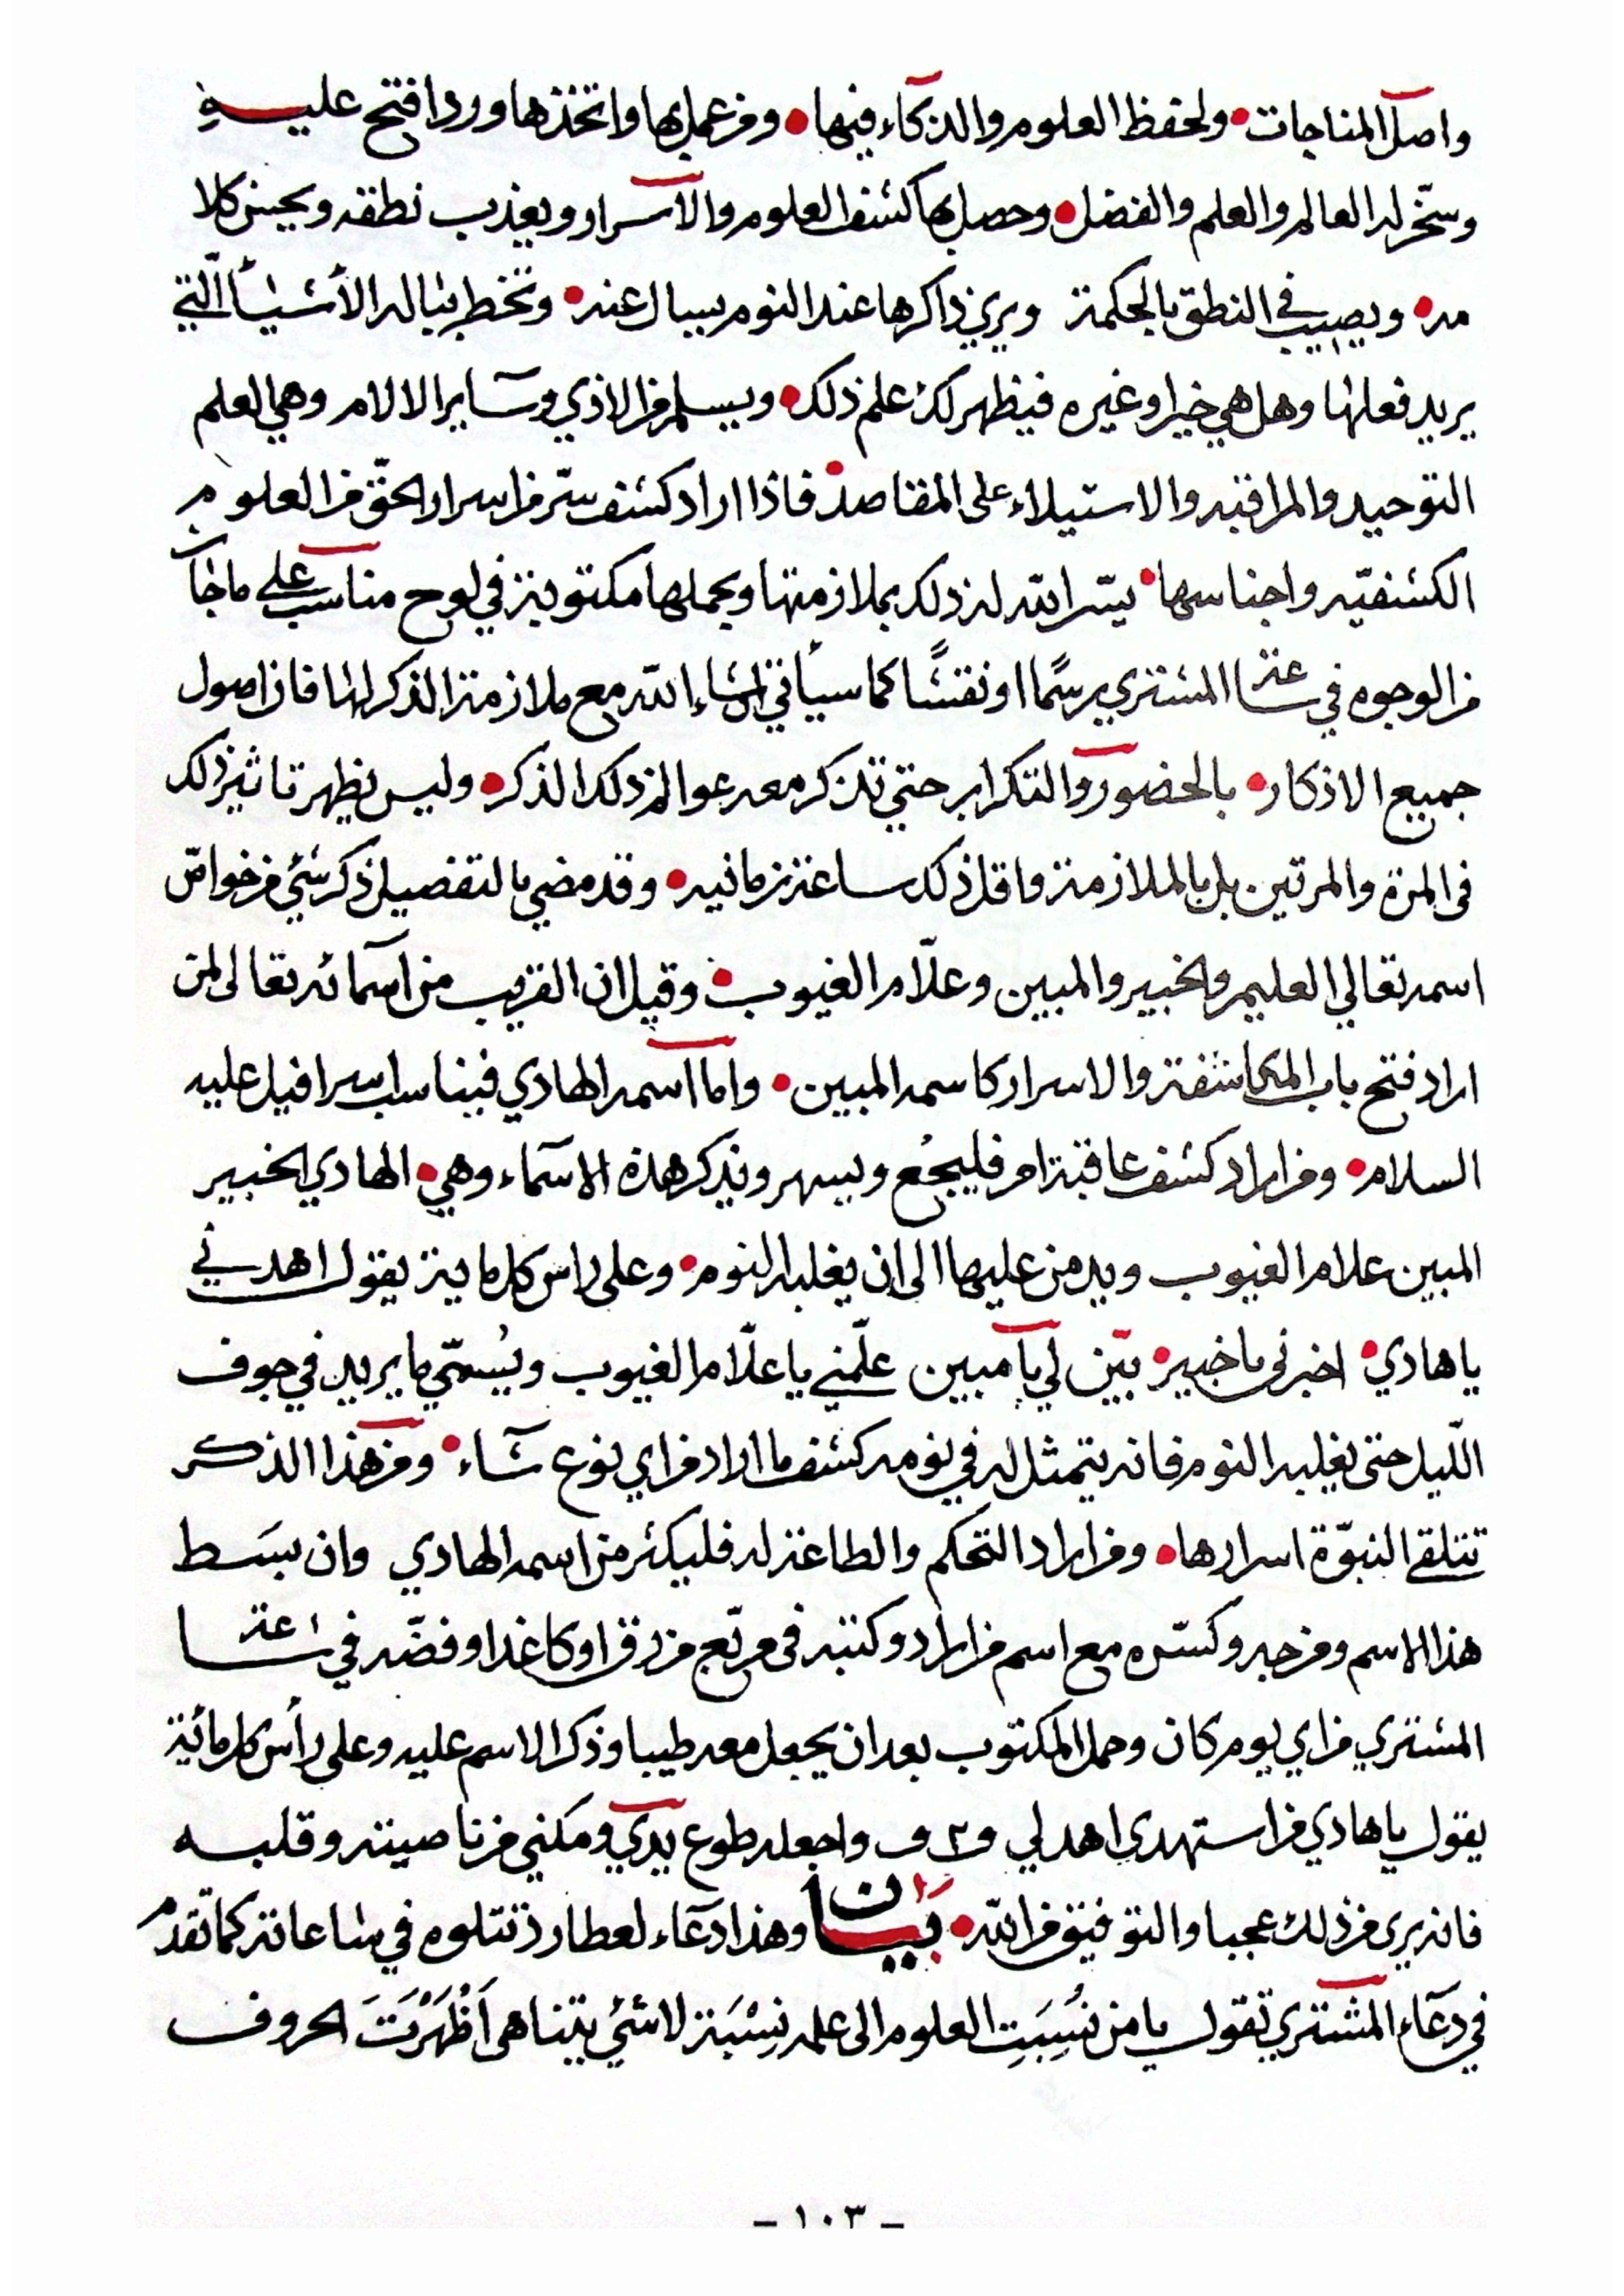 واصل المناجات • ولحفظ العلوم والذكاء فيها • ومن عمل بها واتخذها وردا فتح عليه
وسخر له العالم والعلم والفضل • وحصل بها كشف العلوم والاسرار ويعذب نطقه ويحسن كلا
مه • ويصيب في النطق بالحكمة ويري ذاكرها عند النوم يسال عنه • وتخطر بباله الأشيأ الّتي
يريد فعلها وهل هي خير او غيره فيظهر لك علم ذلك • ويسلم من الاذي وسآير الالام وهي لعلم
التوحيد والمراقبه والاستيلاء على المقاصد • فاذا اراد كشف سرّ من اسرار الحقّ من العلوم
الكشفيّه واجناسها • يسّر الله له ذلك بملازمتها ويحملها مكتوبة في لوح مناسب علي ماجآ
من الوجوه في ساعة المشتري يرسمًا او نقشًا كما سيأتي انشاء الله مع ملازمة الذكر لها فان اصول
جميع الاذكار • بالحضور والتكرار حتي تذكر معه عوالم ذلك الذكر • وليس يظهر تاثير ذلك
في المرة والمرتين بل بالملازمة واقل ذلك ساعة زمانيه • وقد مضي بالتفصيل ذكر شئ من خواصّ
اسمه تعالي العليم والخبير والمبين وعلّام الغيوب • وقيل ان القريب من اسمائه تعالى لمن
اراد فتح باب المكاشفة والاسرار كاسمه المبين • واما اسمه الهادي فيناسب اسرافيل عليه
السلام • ومن اراد كشف عاقبة امر فليجُع ويسهر ويذكر هذه الاسمآء وهي • الهادي الخبير
المبين علام الغيوب ويدمن عليها الى ان يغلبه النوم • وعلى راس كل ماية يقول اهدني
يا هادي • اخبرني يا خبير • بيّن لي يآ مبين علّمني يا علّام الغيوب ويُسمّي ما يريد في جوف
اللّيل حتى يغلبه النوم فانه يتمثل له في نومه كشف ما اراد من اي نوع شآء • ومن هذا الذكر
تتلقي النبوّة اسرارها • ومن اراد التحكم والطاعة له فليكثر من اسمه الهادي وان بسَط
هذا الاسم ومزجه وكسّره مع اسم من اراد وكتبه في مربّع من رق او كاغد او فضّه في ساعة
المشتري من اي يوم كان وحمل المكتوب بعد ان يجعل معه طيبا وذكر الاسم عليه وعلى رأس كل مائة
يقول يا هادي من استهدي اهد لي واجعله طوع يدي ومكني من ناصيته وقلبه
فانه يرى من ذلك عجبا والتوفيق من الله • بيان وهذا دعآء لعطارد تتلوه في ساعاته كما تقدم
في دعآء المشتري تقول يا من نُسِبَتِ العلوم الى علمه نِسْبَة لا شئ يتناهى اَظْهَرْتَ الحروف
- ١٠٣ -